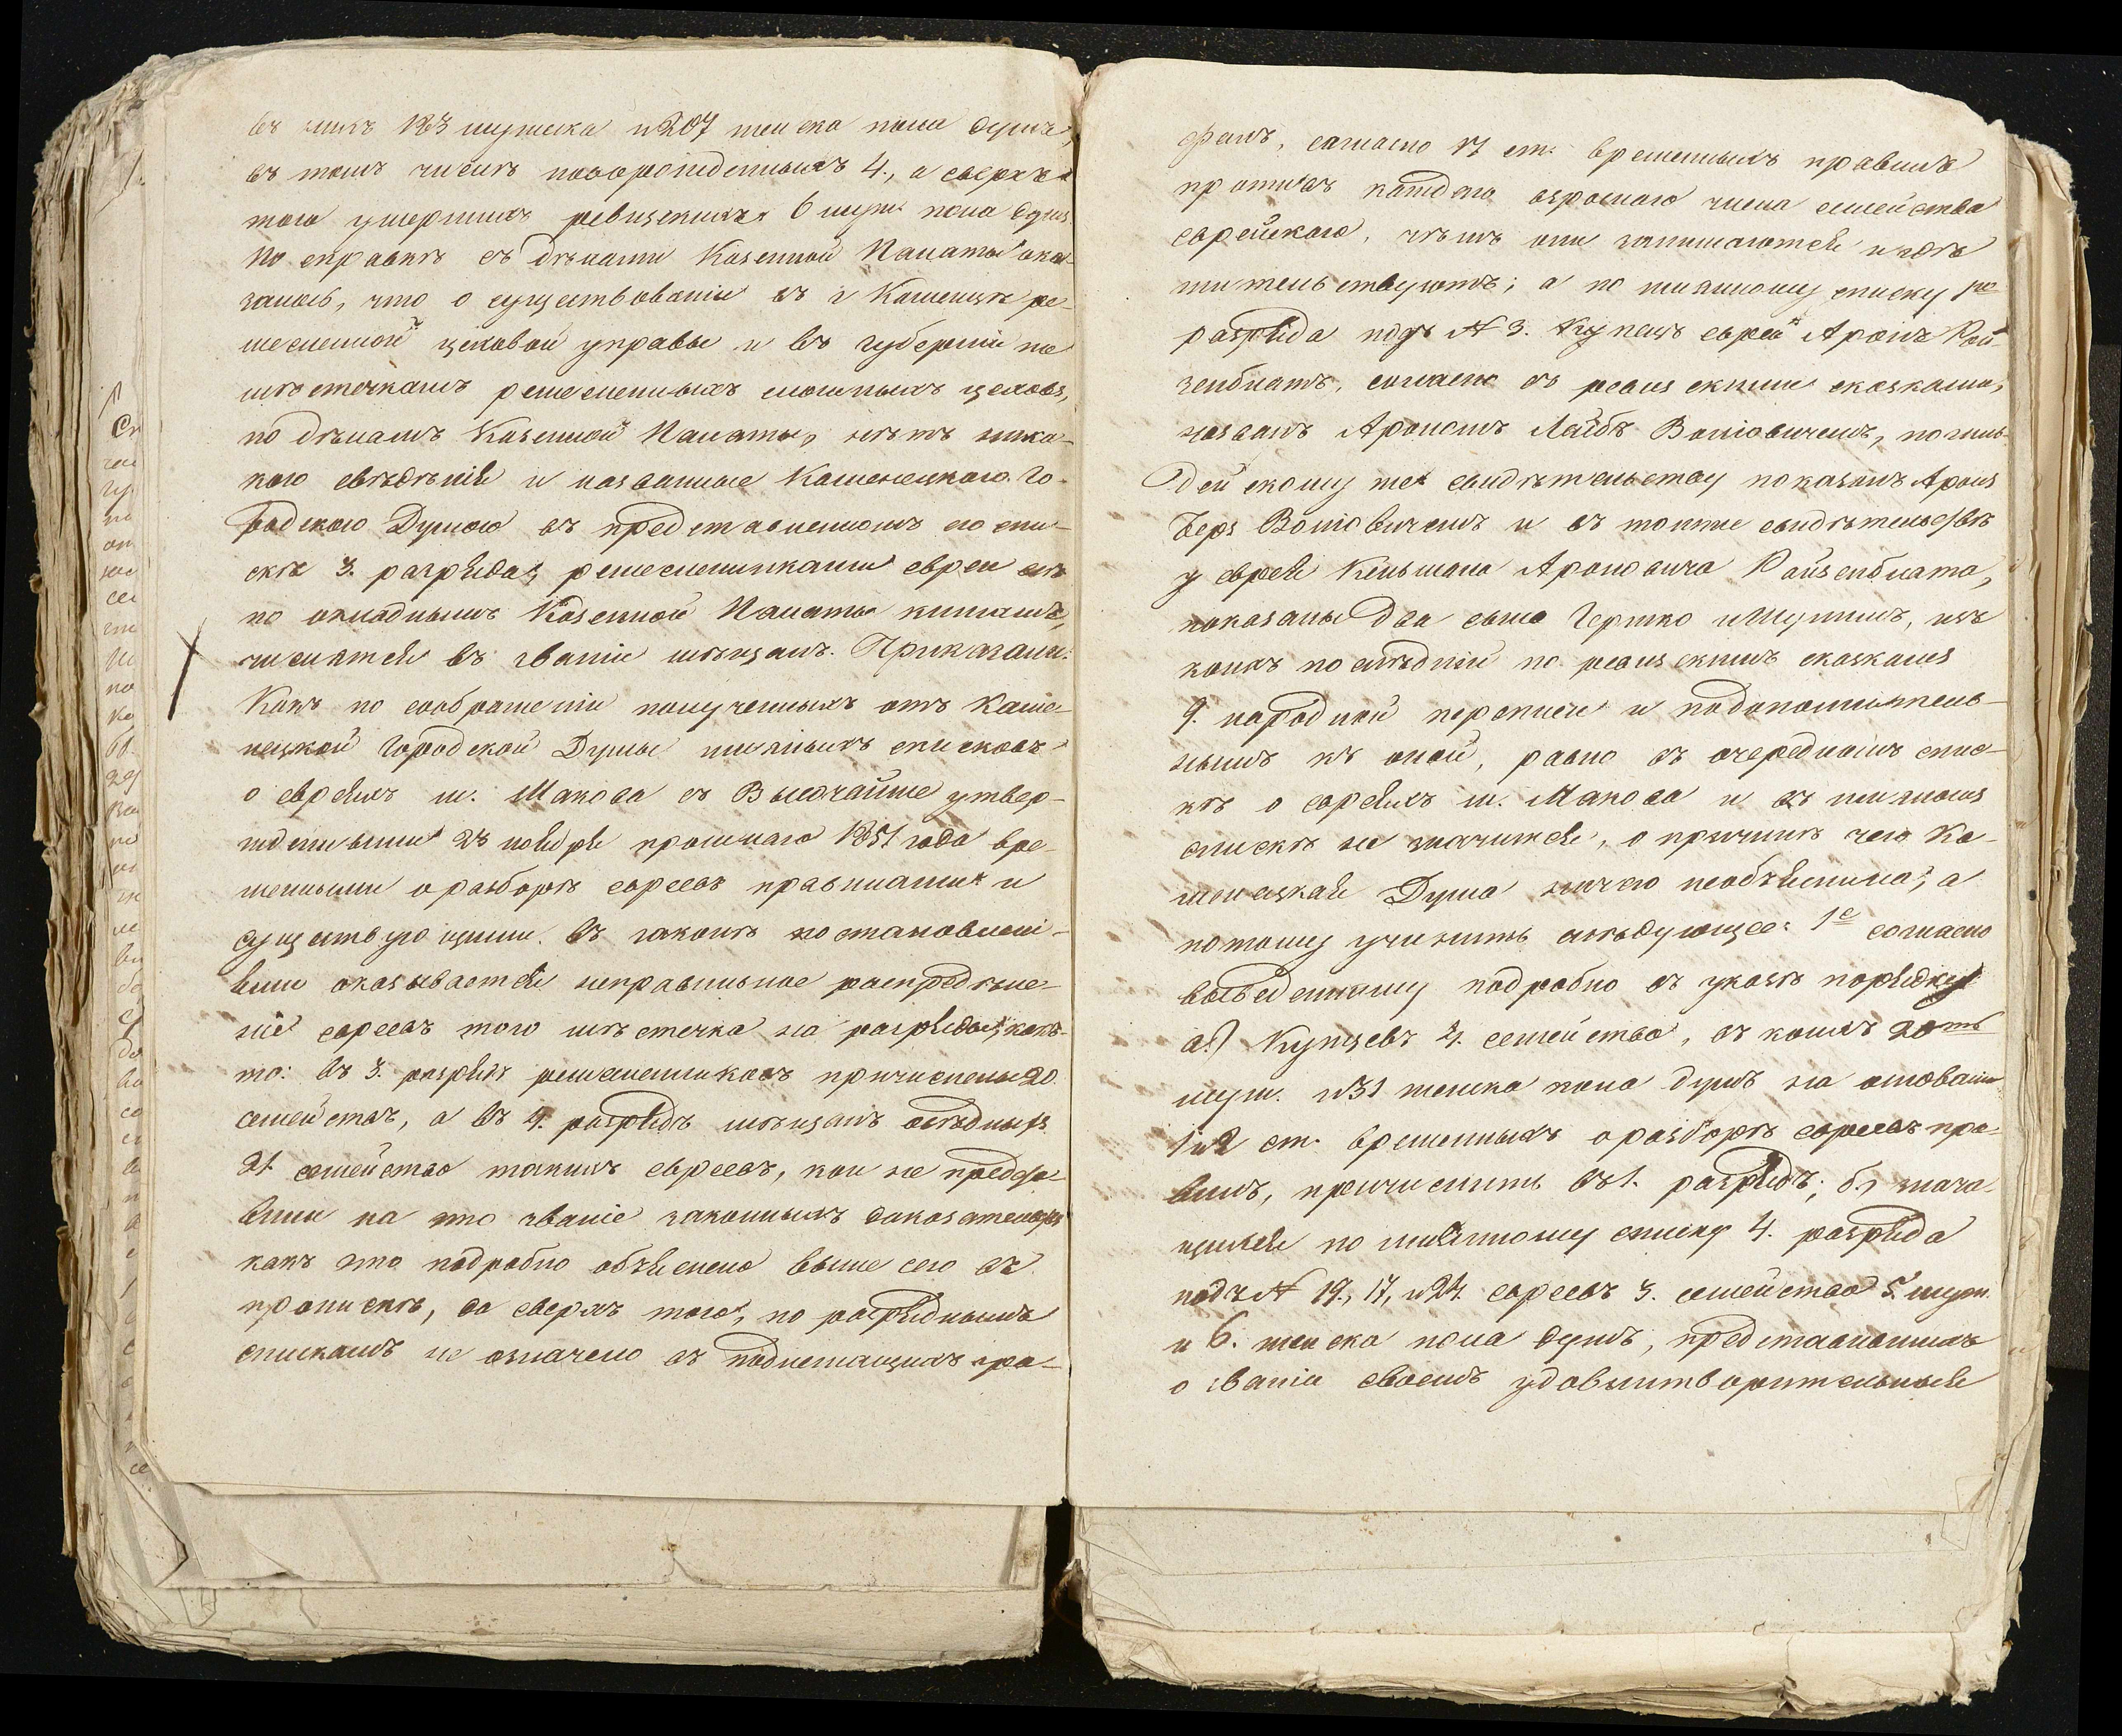 въ нихъ 183 мужеска и 207 женска пола душъ,
въ томъ числѣ новорожденныхъ 4., а сверхъ
того умершихъ ревизскихъ 6 муж. пола душъ.
По справкѣ съ дѣлами Казенной Палаты ока-
залось, что о существованіи въ г. Каменцѣ ре-
месленной цеховой управы и въ губерніи по
мѣстечкамъ ремесленныхъ цеховъ,
по дѣламъ Казенной Палаты, нѣтъ ника-
кого свѣдѣнія и названные Каменецкою Го-
родскою Думою въ представленномъ ею спи-
скѣ 3. разряда, ремесленниками евреи
по окладнымъ Казенной Палаты книгамъ,
числятся въ званіи мѣщанъ. Приказали:
Какъ по соображеніи полученныхъ отъ Каме-
нецкой Городской Думы списковъ
о евреяхъ м. Макова съ Высочайше утвер-
жденными 23 ноября прошлаго 1851 года вре-
менными о разборѣ евреевъ правилами и
существующими въ законѣ постановлені-
ями оказывается неправильное распредѣле-
ніе евреевъ того мѣстечка на разряды, какъ
то: въ 3. разрядъ ремесленниковъ причислены 20
семействъ, а въ 4. разрядъ мѣщанъ осѣдлыхъ
21 семейство такихъ евреевъ, кои не предста-
вили на это званіе законныхъ доказательствъ
какъ это подробно объяснено выше сего въ
пропискѣ, да сверхъ того, по разряднымъ
спискамъ не означено въ подлежащихъ гра-
фахъ, согласно 17 ст. временныхъ правилъ
противъ каждаго взрослаго члена семейства
еврейскаго, чѣмъ они занимаются и гдѣ
жительствуютъ; а по списку 1го
разряда подъ № 3. Купецъ еврей Аронъ Рой-
зенблатъ, согласно съ ревизскими сказками,
названъ Арономъ Лейбъ Вольовичемъ, по гиль-
дейскому же свидѣтельству показанъ Аронъ
Беръ Вольовичемъ и въ томже свидѣтельствѣ
у еврея Кельмана Ароновича Ройзенблата,
показаны два сына Гершко и Шулимъ, изъ
коихъ послѣдній по ревизскимъ сказкамъ
9. народной переписи и по дополнитель-
нымъ къ оной, равно въ очередномъ спис-
кѣ о евреяхъ м. Макова и въ
спискѣ не значится, о причинѣ чего Ка-
менецкая Дума ничего необъяснила, а
потому учинить слѣдующее: 1е согласно
выведенному подробно въ указѣ порядку
а.) Купцевъ 4. семейства, въ коихъ 20ть
муж. и 31 женска пола душъ на основаніи
1 и 2 ст. временныхъ о разборѣ евреевъ пра-
вилъ, причислить въ 1. разрядъ; б.) знача-
щихся по списку 4. разряда
подъ № 19., 17, и 24. евреевъ 3. семейства 5. муж.
и 6. женска пола душъ, представившихъ
о званіи своемъ удовлетворительныя